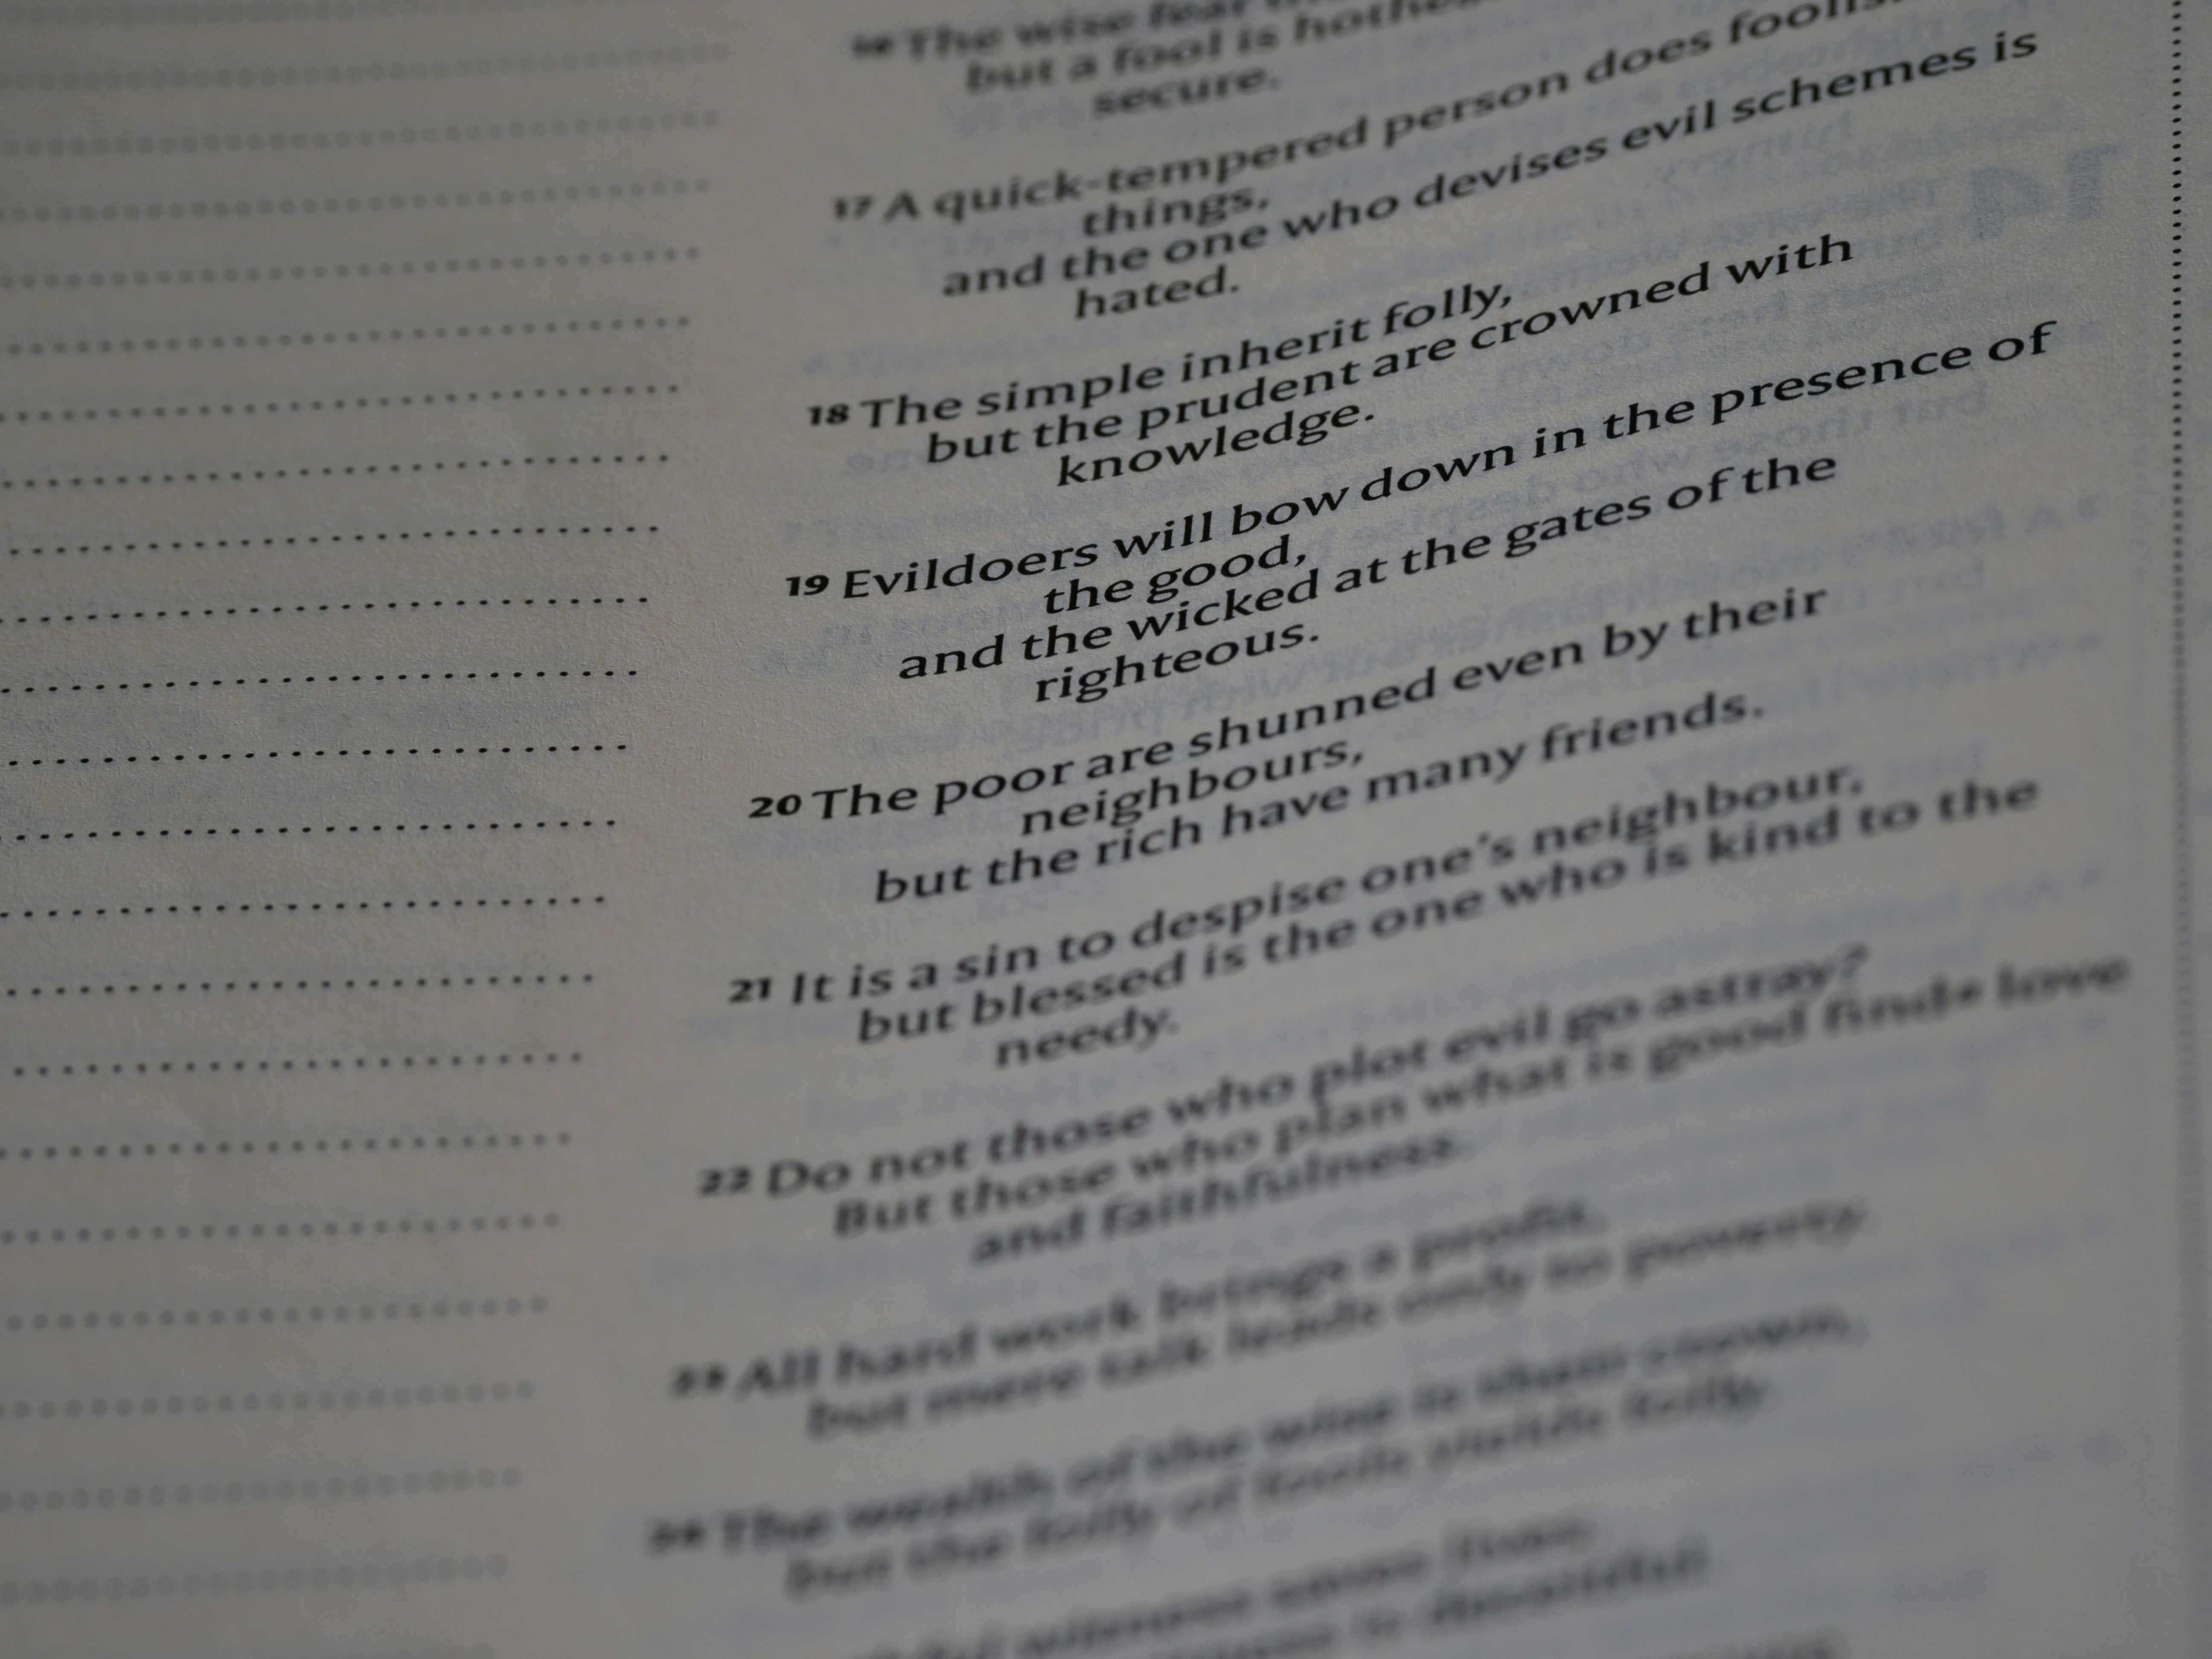 16 The wise fear
but a fool is
secure.
17 A quick-tempered person does
things,
and the one who devises evil schemes is
hated.
18 The simple inherit folly,
but the prudent are crowned with
knowledge.
19 Evildoers will bow down in the presence of
the good,
and the wicked at the gates of the
righteous.
20 The poor are shunned even by their
neighbours,
but the rich have many friends.
21 It is a sin to despise one's neighbour,
but blessed is the one who is kind to the
needy.
22 Do not those who plot evil go astray?
But those who plan what is good find love
and faithfulness.
23 All hard work brings a profit,
but mere talk leads only to poverty.
24 The wealth of the wise is their crown,
but the folly of fools yields folly.
witness saves lives,
is deceitful.
14